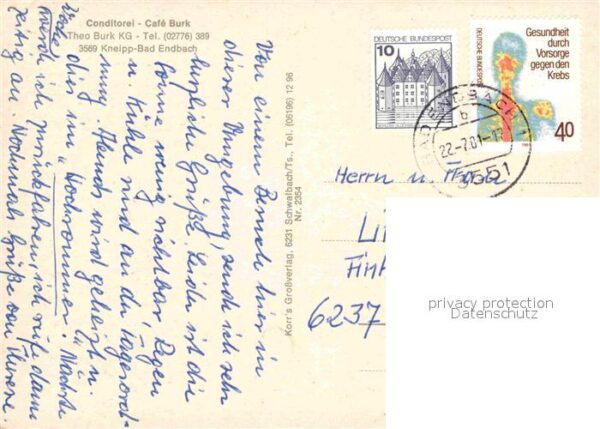 Conditorei - Café Burk
Theo Burk KG - Tel. (02776) 389
3569 Kneipp-Bad Endbach
Von einem Besuch hier in
dieser Umgebung, send ich sehr
herzliche Grüße. Leider ist die
Sonne wenig sichtbar. Regen
u. Kühle sind an der Tagesord-
nung. Hand wird geheizt u.
dies im "Hochsommer". Nächste
Woche werd ich zurückfahren, ich rufe dann
zeitig an. Nochmals Grüße von Therese
Korr's Großverlag, 6231 Schwalbach/Ts., Tel. (06196) 12 96
Nr. 2354
10
DEUTSCHE BUNDESPOST
DEUTSCHE BUNDESPOST
Gesundheit
durch
Vorsorge
gegen den
Krebs
40
BAD ENDBACH 1
b
22.-7.81-17
3551
Herrn u. Frau
Li
Fin
6237
privacy protection
Datenschutz